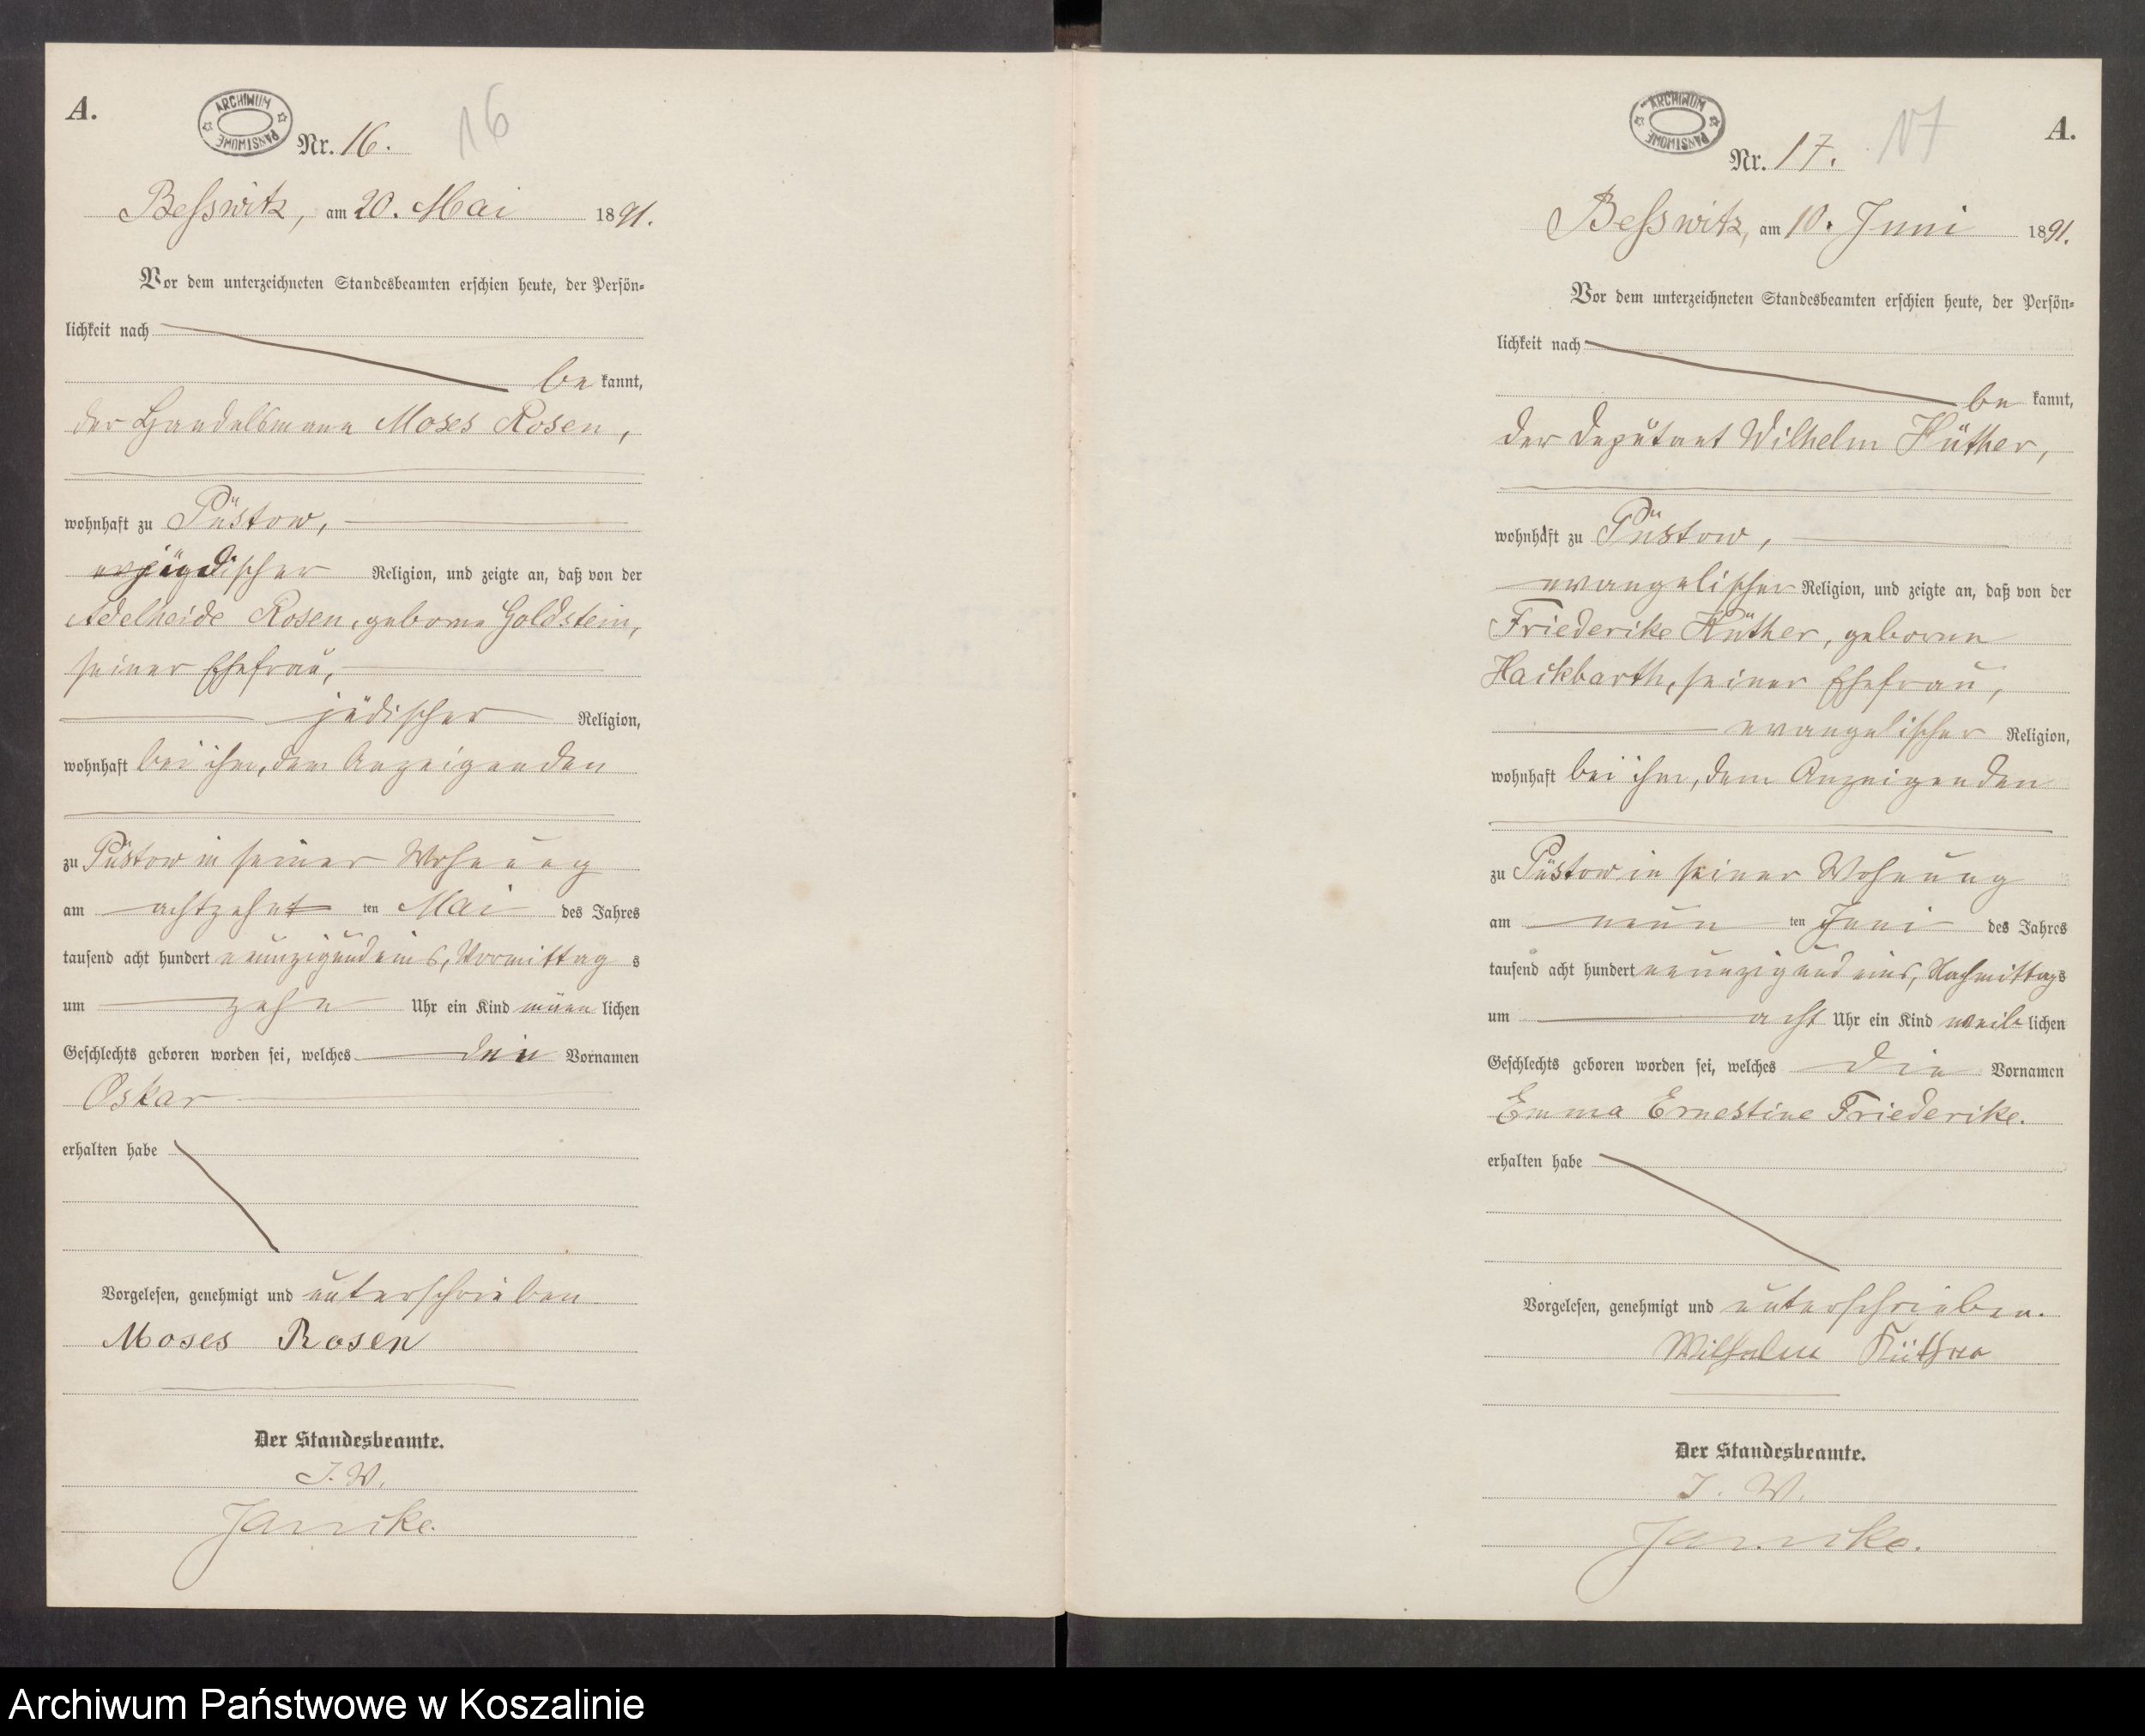 A.
ARCHIWUM PAŃSTWOWE
Nr. 16.
16
Beßwitz, am 20. Mai 1891.
Vor dem unterzeichneten Standesbeamten erschien heute, der Persön-
lichkeit nach
be kannt,
der Handelsmann Moses Rosen,
wohnhaft zu Püstow,
jüdischer Religion, und zeigte an, daß von der
Adelheide Rosen, geborne Goldstein,
seiner Ehefrau,
jüdischer Religion,
wohnhaft bei ihm, dem Anzeigenden
zu Püstow in seiner Wohnung
am achtzehnt ten Mai des Jahres
tausend acht hundert neunzigundeins, Vormittag s
um zehn Uhr ein Kind männ lichen
Geschlechts geboren worden sei, welches den Vornamen
Oskar
erhalten habe
Vorgelesen, genehmigt und unterschrieben
Moses Rosen
Der Standesbeamte.
J. W.
Jannke.
A.
ARCHIWUM PAŃSTWOWE
Nr. 17.
17
Beßwitz, am 10. Juni 1891.
Vor dem unterzeichneten Standesbeamten erschien heute, der Persön-
lichkeit nach
be kannt,
der Deputant Wilhelm Hüther,
wohnhaft zu Püstow,
evangelischer Religion, und zeigte an, daß von der
Friederike Hüther, geboren
Hackbarth, seiner Ehefrau,
evangelischer Religion,
wohnhaft bei ihm, dem Anzeigenden
zu Püstow in seiner Wohnung
am neun ten Juni des Jahres
tausend acht hundert neunzigundeins, Nachmittags
um acht Uhr ein Kind weib lichen
Geschlechts geboren worden sei, welches die Vornamen
Emma Ernestine Friederike.
erhalten habe
Vorgelesen, genehmigt und unterschrieben.
Wilhelm Hüther
Der Standesbeamte.
J. W.
Jannke.
Archiwum Państwowe w Koszalinie